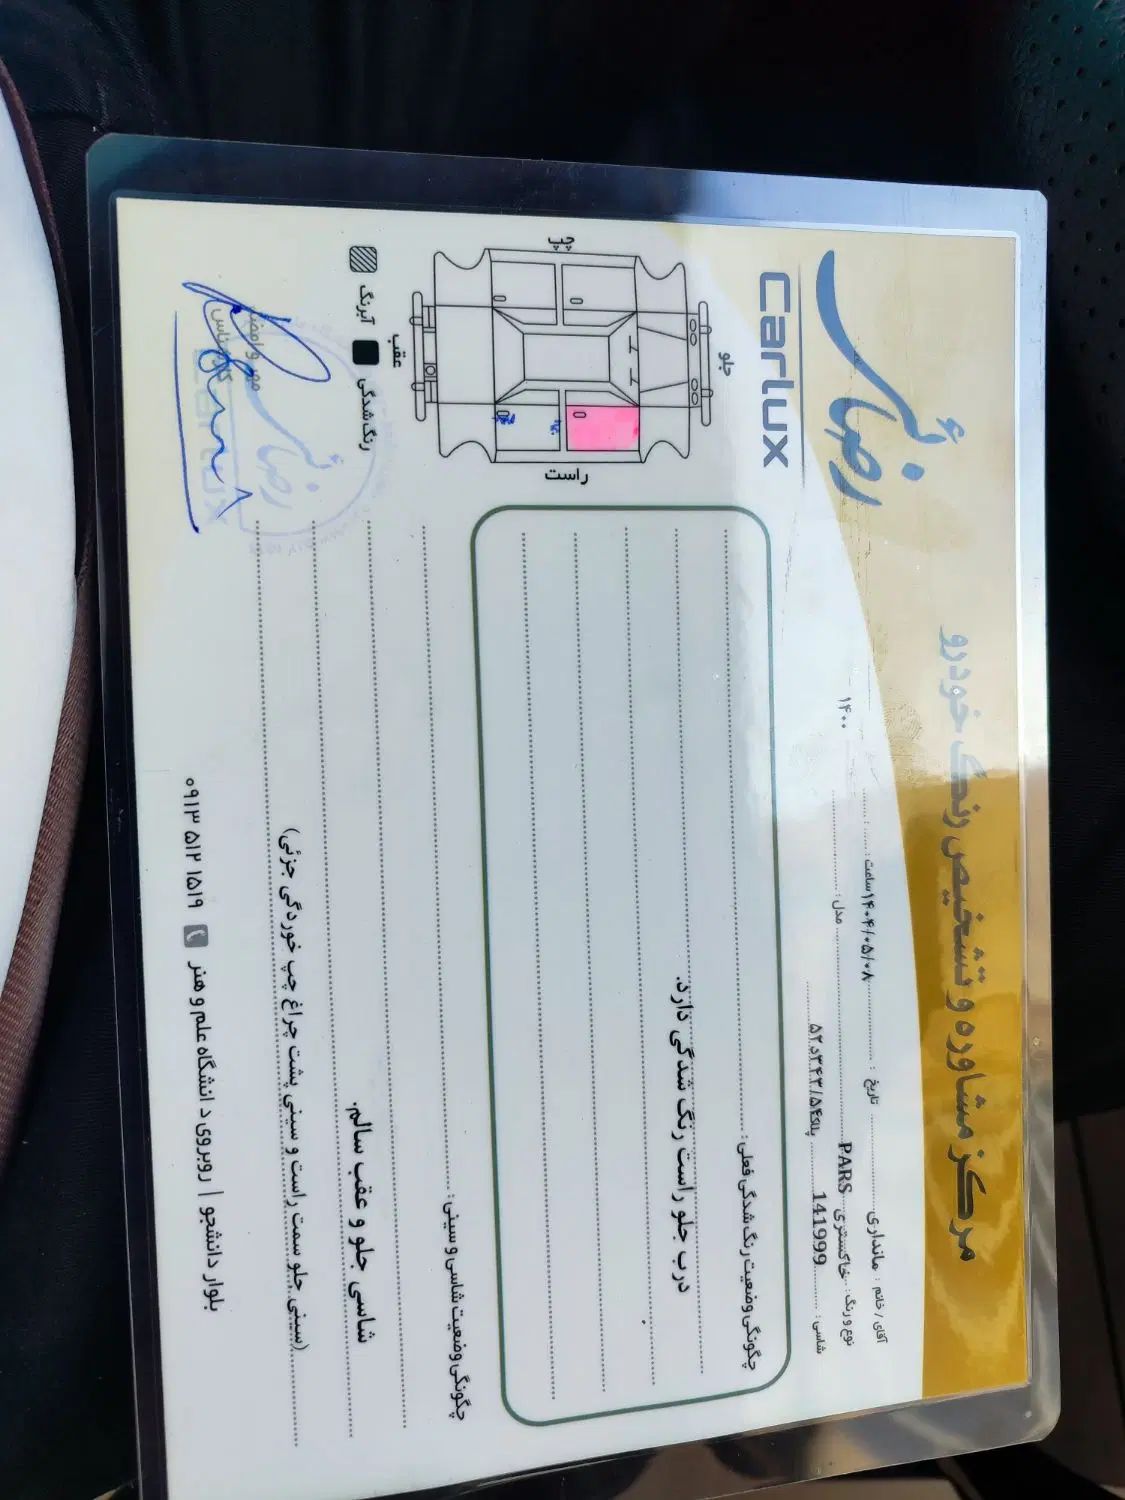 مرکز مشاوره و تشخیص رنگ خودرو
رضائی
Carlux
آقای / خانم : مانداری تاریخ : ۱۴۰۴/۰۵/۰۸ ساعت :
نوع و رنگ : خاکستری PARS مدل : ۱۴۰۰
شاسی : 141999 پلاک
چگونگی وضعیت رنگ شدگی فعلی :
درب جلو راست رنگ شدگی دارد.
جلو
چپ
راست
عقب
رنگ شدگی
آبرنگ
چگونگی وضعیت شاسی و سینی :
شاسی جلو و عقب سالم.
(سینی جلو سمت راست و سینی پشت چراغ چپ خوردگی جزئی)
مهر و امضاء
کارشناس
بلوار دانشجو | روبروی دانشگاه علم و هنر
۰۹۱۳ ۵۱۲ ۱۵۱۹